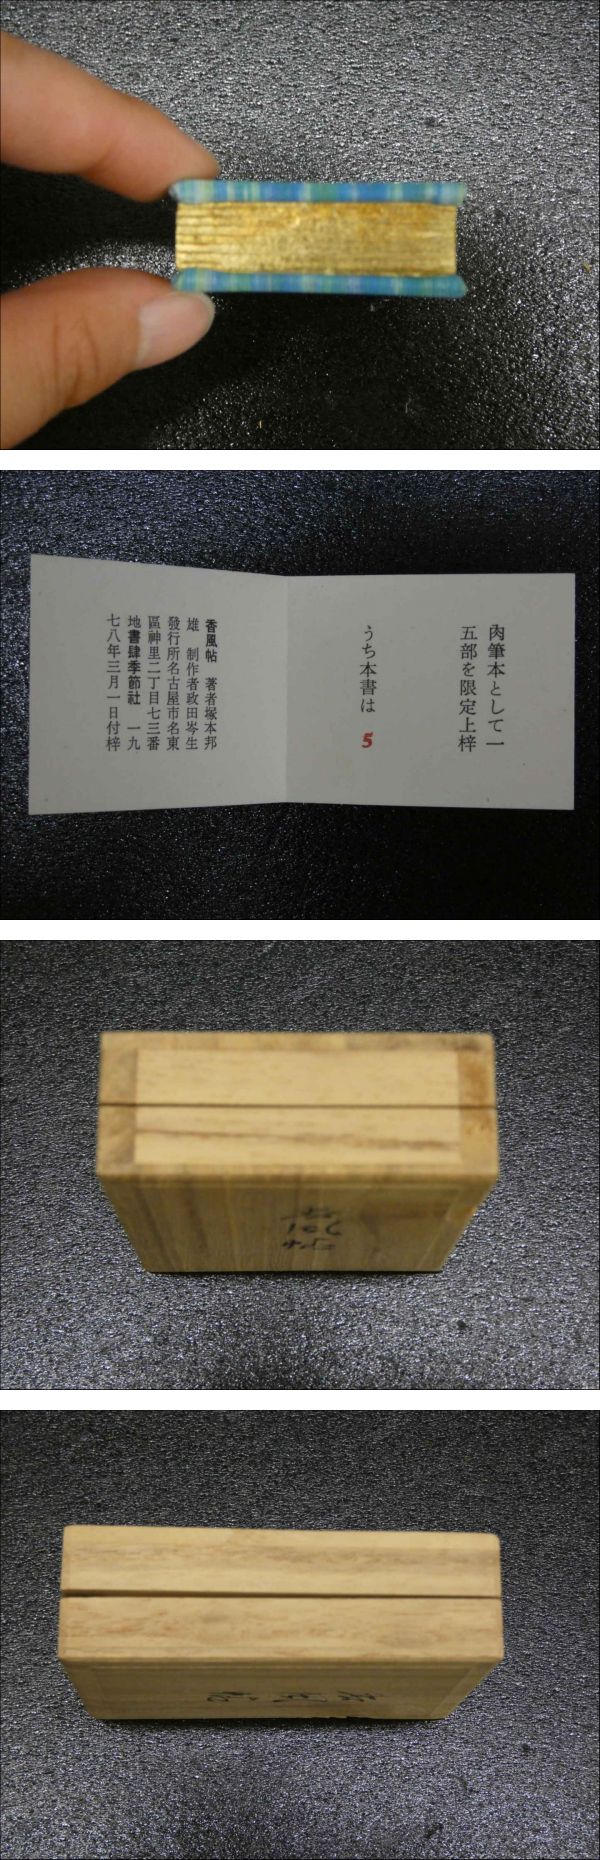 肉筆本として一
五部を限定上梓
うち本書は 5
香風帖 著者塚本邦
雄 制作者政田岑生
發行所名古屋市名東
區神里二丁目七三番
地書肆季節社 一九
七八年三月一日付梓